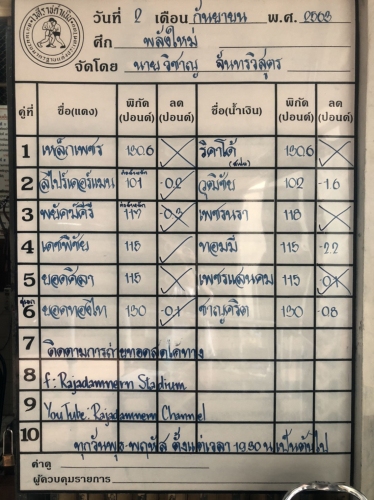 วันที่ 2 เดือน กันยายน พ.ศ. 2563
ศึก พลังใหม่
จัดโดย นาย วิชาญ จันทรวิสูตร
คู่ที่ ชื่อ(แดง) พิกัด (ปอนด์) ลด (ปอนด์) ชื่อ(น้ำเงิน) พิกัด (ปอนด์) ลด (ปอนด์)
1 เหล็กเพชร 130.6 ริคาโด้ 130.6
2 สไปร์เดอร์แมน 101 -0.2 วุฒิชัย 102 -1.6
3 พยัคฆ์ศิริ 117 -0.3 เพชรนรา 118
4 เดชพิชัย 115 ทอมมี่ 115 -2.2
5 ยอดศิลา 115 เพชรแสนคม 115 -0.1
6 ยอดทองไท 130 -0.1 ชาญคริต 130 -0.8
7 ติดตามการถ่ายทอดสดได้ทาง
8 f: Rajadamnern Stadium
9 YouTube: Rajadamnern Channel
10 ทุกวันพุธ-พฤหัส ตั้งแต่เวลา 19.30 น เป็นต้นไป
ค่าดู
ผู้ควบคุมรายการ